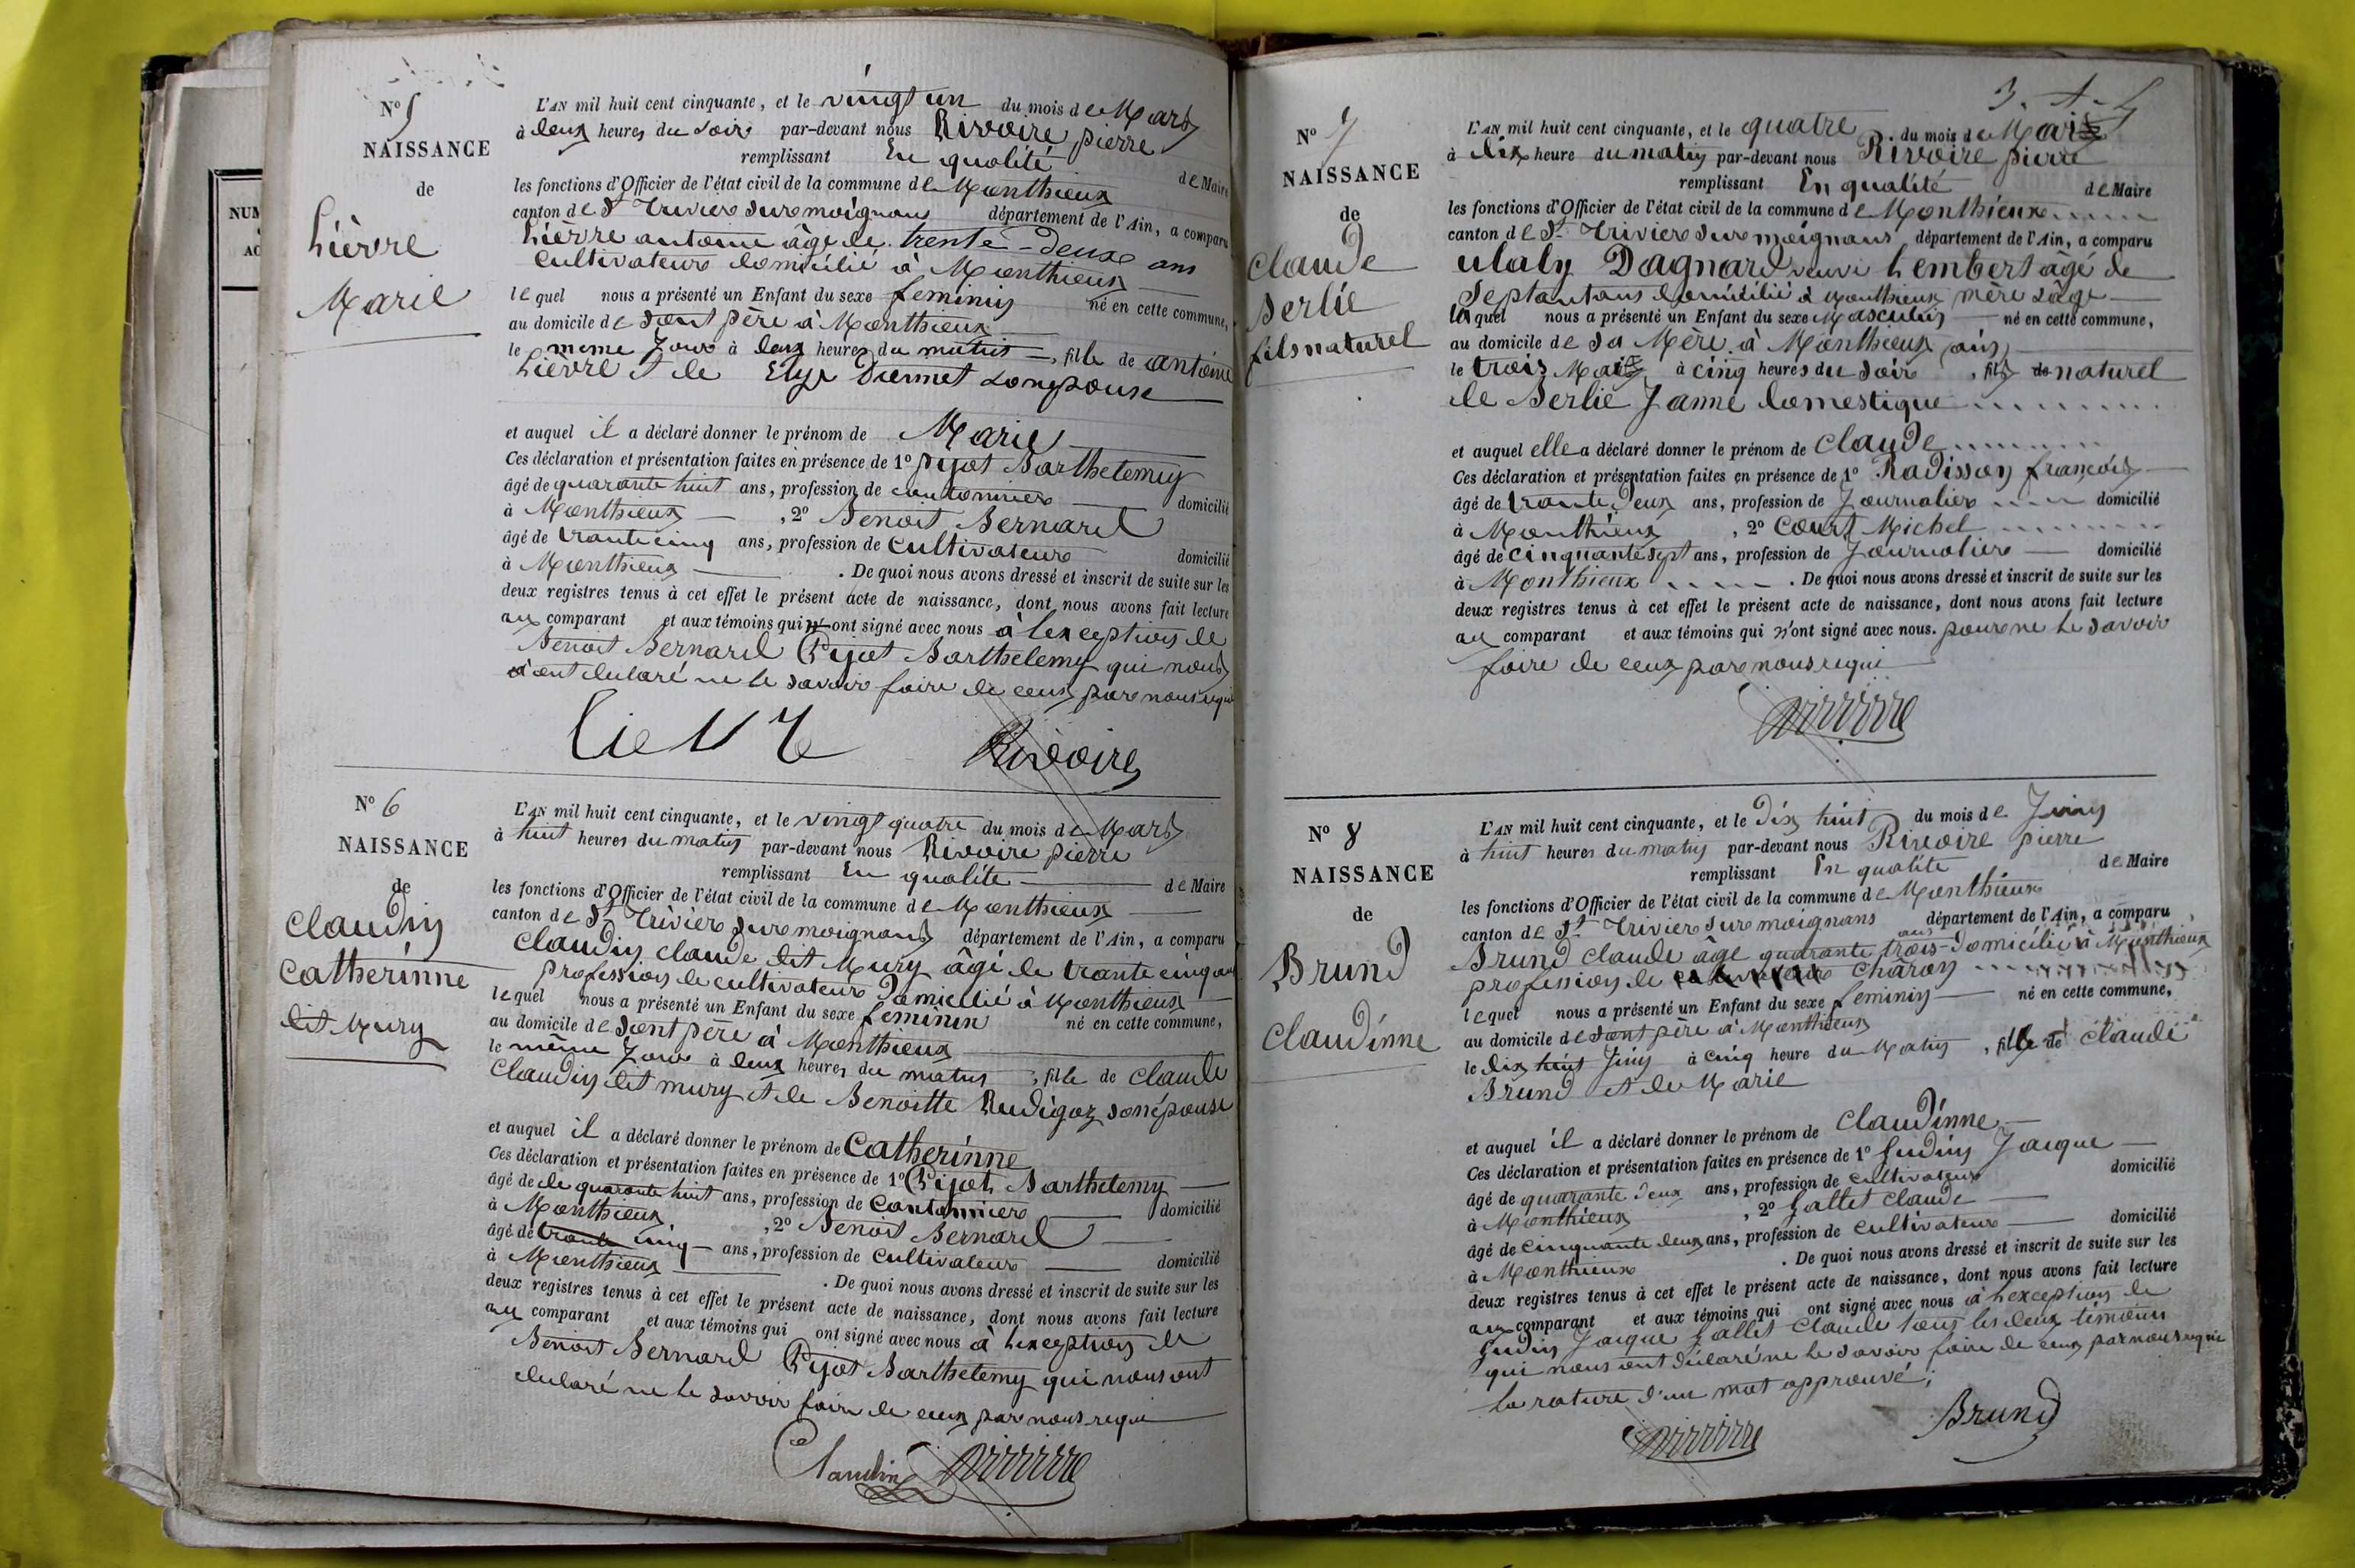 N° 5
NAISSANCE
de
Lièvre
Marie
L'AN mil huit cent cinquante, et le vingt un du mois de Mars
à deux heures du soir par-devant nous Rivoire pierre
remplissant En qualité de Maire
les fonctions d'Officier de l'état civil de la commune de Monthieux
canton de St Trivier sur moignans département de l'Ain, a comparu
Lièvre antoine âgé de trente-deux ans
cultivateur domicilié à Monthieux
lequel nous a présenté un Enfant du sexe feminin né en cette commune,
au domicile de sont père à Monthieux
le meme Jour à deux heures du matin, fille de antoine
Lièvre et de Elyse Duermet son epouse
et auquel il a déclaré donner le prénom de Marie
Ces déclaration et présentation faites en présence de 1° pijot Barthelemy
âgé de quarante huit ans, profession de cantonnier domicilié
à Monthieux, 2° Benoit Bernard
âgé de trante cinq ans, profession de cultivateur domicilié
à Monthieux. De quoi nous avons dressé et inscrit de suite sur les
deux registres tenus à cet effet le présent acte de naissance, dont nous avons fait lecture
au comparant et aux témoins qui ont signé avec nous à lexception de
Benoit Bernard Pijot Barthelemy qui nous
ont declaré ne le savoir faire de ceux par nous requi
Lievre Rivoire
N° 6
NAISSANCE
de
Claudin
Catherinne
dit Mury
L'AN mil huit cent cinquante, et le vingt quatre du mois de Mars
à huit heures du matin par-devant nous Rivoire pierre
remplissant En qualité de Maire
les fonctions d'Officier de l'état civil de la commune de Monthieux
canton de St Trivier sur moignans département de l'Ain, a comparu
Claudin claude dit Mury âgé de trante cinq ans
profession de cultivateur Domicilié à Monthieux
lequel nous a présenté un Enfant du sexe feminin né en cette commune,
au domicile de sont père à Monthieux
le même Jour à deux heures du matin, fille de Claude
Claudin dit mury et de Benoitte Rudigoz son épouse
et auquel il a déclaré donner le prénom de Catherinne
Ces déclaration et présentation faites en présence de 1° Pijot Barthelemy
âgé de de quarante huit ans, profession de Cantonnier domicilié
à Monthieux, 2° Benoit Bernard
âgé de trante cinq ans, profession de cultivateur domicilié
à Monthieux. De quoi nous avons dressé et inscrit de suite sur les
deux registres tenus à cet effet le présent acte de naissance, dont nous avons fait lecture
au comparant et aux témoins qui ont signé avec nous à lexception de
Benoit Bernard Pijot Barthelemy qui nous ont
declaré ne le savoir faire de ceux par nous requi
Claudin
N° 7
NAISSANCE
de
Claude
Berlie
fils naturel
L'AN mil huit cent cinquante, et le quatre du mois de Mai
à dix heure du matin par-devant nous Rivoire pierre
remplissant En qualité de Maire
les fonctions d'Officier de l'état civil de la commune de Monthieux
canton de St Trivier sur moignans département de l'Ain, a comparu
ulaly Dagnard veuve Lembert âgé de
septantans domicilié à Monthieux mère sage
lequel nous a présenté un Enfant du sexe Masculin né en cette commune,
au domicile de sa Mère à Monthieux (ain)
le trois Mai à cinq heures du soir, fils de naturel
de Berlie Janne domestique
et auquel elle a déclaré donner le prénom de Claude
Ces déclaration et présentation faites en présence de 1° Radisson françois
âgé de trante deux ans, profession de Journalier domicilié
à Monthieux, 2° Court Michel
âgé de cinquante sept ans, profession de Journalier domicilié
à Monthieux. De quoi nous avons dressé et inscrit de suite sur les
deux registres tenus à cet effet le présent acte de naissance, dont nous avons fait lecture
au comparant et aux témoins qui n'ont signé avec nous. pour ne le savoir
faire de ceux par nous requi
N° 8
NAISSANCE
de
Brund
Claudinne
L'AN mil huit cent cinquante, et le Dix huit du mois de Juin
à huit heures du matin par-devant nous Rivoire pierre
remplissant En qualité de Maire
les fonctions d'Officier de l'état civil de la commune de Monthieux
canton de St Trivier sur moignans département de l'Ain, a comparu
Brund claude âgé quarante trois ans domicilié à Monthieux
profession de charon
lequel nous a présenté un Enfant du sexe feminin né en cette commune,
au domicile de sont père à Monthieux
le dix huit Juin à cinq heure du Matin, fille de Claude
Brund et de Marie
et auquel il a déclaré donner le prénom de Claudinne
Ces déclaration et présentation faites en présence de 1° Gudin Jacque
âgé de quarante deux ans, profession de cultivateur domicilié
à Monthieux, 2° Gallet Claude
âgé de cinquante deux ans, profession de cultivateur domicilié
à Monthieux. De quoi nous avons dressé et inscrit de suite sur les
deux registres tenus à cet effet le présent acte de naissance, dont nous avons fait lecture
au comparant et aux témoins qui ont signé avec nous à lexception de
Gudin Jacque Gallet Claude tous les deux témoins
qui nous ont déclaré ne le savoir faire de ceux par nous requi
la rature d'un mot approuvé;
Brund